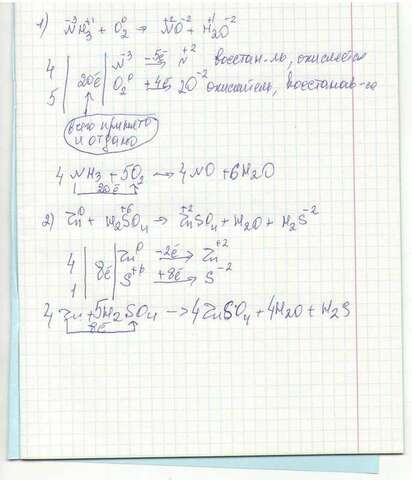 1) N⁻³H₃⁺¹ + O₂⁰ → N⁺²O⁻² + H₂⁺¹O⁻²
4 | 20ē | N⁻³ —5ē→ N⁺² восстан-ль, окисляется
5 | O₂⁰ +4ē→ 2O⁻² окислитель, восстанав-ся
всего принято
и отдано
4NH₃ + 5O₂ → 4NO + 6H₂O
20ē
2) Zn⁰ + H₂S⁺⁶O₄ → Zn⁺²SO₄ + H₂O + H₂S⁻²
4 | 8ē | Zn⁰ −2ē→ Zn⁺²
1 | S⁺⁶ +8ē→ S⁻²
4Zn + 5H₂SO₄ → 4ZnSO₄ + 4H₂O + H₂S
8ē